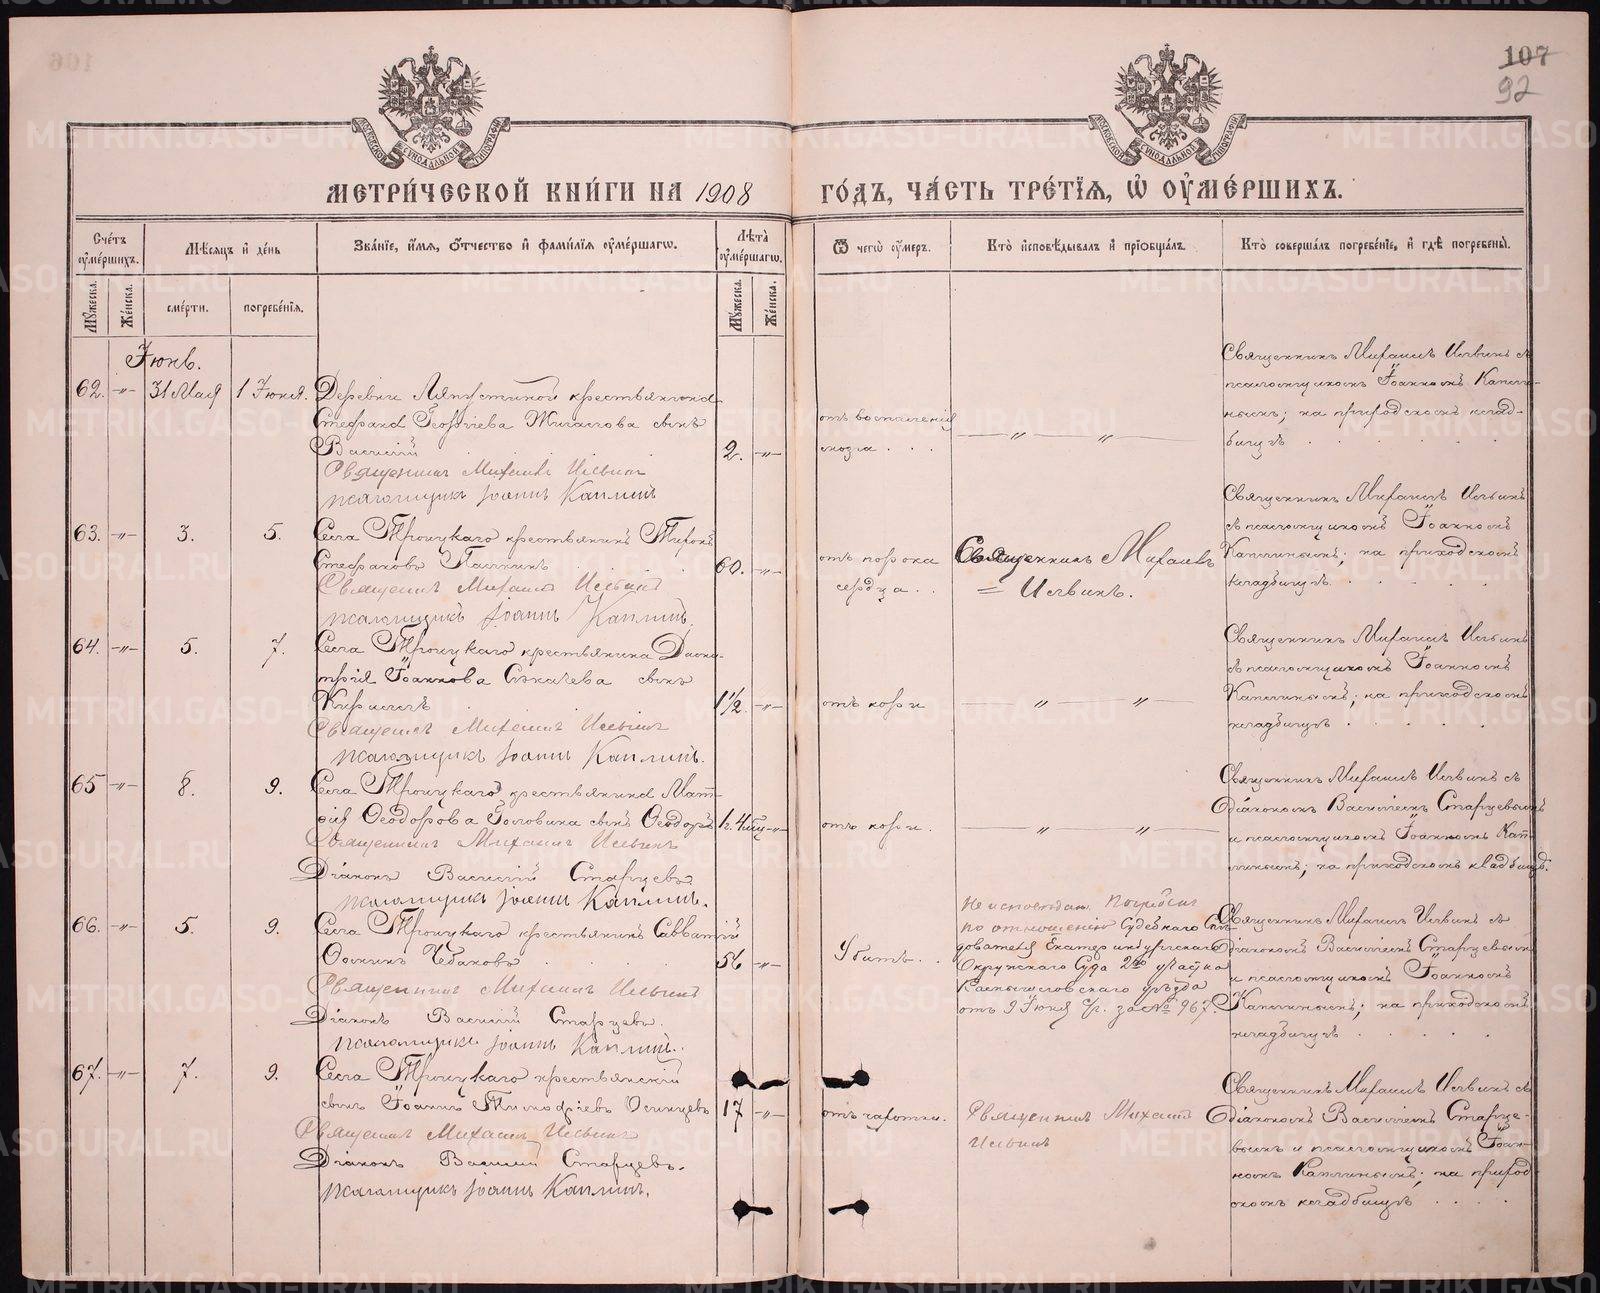 107
92
МЕТРИ́ЧЕСКОЙ КНИ́ГИ НА 1908
ГО́ДЪ, ЧА́СТЬ ТРЕ́ТІѦ, Ѡ ОУМЕ́РШИХЪ.
Сче́тъ оумершихъ.
Мѣсяцъ и де́нь
Зва́ніе, и́мя, о́тчество и фами́лія оуме́ршаго.
Лѣта̀ оуме́ршаго.
Ѿ чего̀ оу́меръ.
Кто̀ исповѣдывалъ и пріобщалъ.
Кто̀ соверша́лъ погребе́ніе, и гдѣ̀ погребены̀.
Му́жеска.
Же́нска.
сме́рти.
погребе́нія.
Му́жеска.
Же́нска.
Іюнь.
62. -"- 31 Мая 1 Іюня. Деревни Ляпустиной крестьянина
Стефана Георгіева Жигалова сынъ
Василій 2. -"-
Священникъ Михаилъ Ильинъ
псаломщикъ Іоаннъ Каплинъ
отъ воспаленія
мозга . . .
— " — " —
Священникъ Михаилъ Ильинъ съ
псаломщикомъ Іоанномъ Капли-
нымъ; на приходскомъ клад-
бищѣ
63. -"- 3. 5. Села Троицкаго крестьянинъ Тихонъ
Стефановъ 60. -"-
Священникъ Михаилъ Ильинъ
псаломщикъ Іоаннъ Каплинъ.
отъ порока
сердца . .
Священникъ Михаилъ
= Ильинъ.
Священникъ Михаилъ Ильинъ
съ псаломщикомъ Іоанномъ
Каплинымъ; на приходскомъ
кладбищѣ
64. -"- 5. 7. Села Троицкаго крестьянина
Іоаннова сынъ
Кириллъ 1½. -"-
Священникъ Михаилъ Ильинъ
псаломщикъ Іоаннъ Каплинъ.
отъ кори
— " — " —
Священникъ Михаилъ Ильинъ
съ псаломщикомъ Іоанномъ
Каплинымъ; на приходскомъ
кладбищѣ
65 -"- 8. 9. Села Троицкаго крестьянина Мат-
ѳія Ѳеодорова Головина сынъ Ѳеодоръ 1г. 4 мѣс -"-
Священникъ Михаилъ Ильинъ
Діаконъ Василій Старцевъ
псаломщикъ Іоаннъ Каплинъ.
отъ кори.
— " — " —
Священникъ Михаилъ Ильинъ съ
Діакономъ Василіемъ Старцевымъ
и псаломщикомъ Іоанномъ Кап-
линымъ; на приходскомъ кладбищѣ.
66. -"- 5. 9. Села Троицкаго крестьянинъ Савватій
Чебаковъ 56 -"-
Священникъ Михаилъ Ильинъ
Діаконъ Василій Старцевъ.
псаломщикъ Іоаннъ Каплинъ.
Убитъ. .
Не исповѣдан. Погребенъ
по отношенію Судебнаго Слѣ-
дователя Екатеринбургскаго
Окружнаго Суда 2го участка
Камышловскаго уѣзда
отъ 9 Іюня с/г. за № 967.
Священникъ Михаилъ Ильинъ съ
діакономъ Василіемъ Старцевымъ
и псаломщикомъ Іоанномъ
Каплинымъ; на приходскомъ
кладбищѣ
67. -"- 7. 9. Села Троицкаго крестьянскій
сынъ Іоаннъ Тимофіевъ Осинцевъ 17 -"-
Священникъ Михаилъ Ильинъ
Діаконъ Василій Старцевъ.
псаломщикъ Іоаннъ Каплинъ.
отъ чахотки.
Священникъ Михаилъ
Ильинъ
Священникъ Михаилъ Ильинъ съ
діакономъ Василіемъ Старце-
вымъ и псаломщикомъ Іоан-
номъ Каплинымъ; на приход-
скомъ кладбищѣ
METRIKI.GASO-URAL.RU